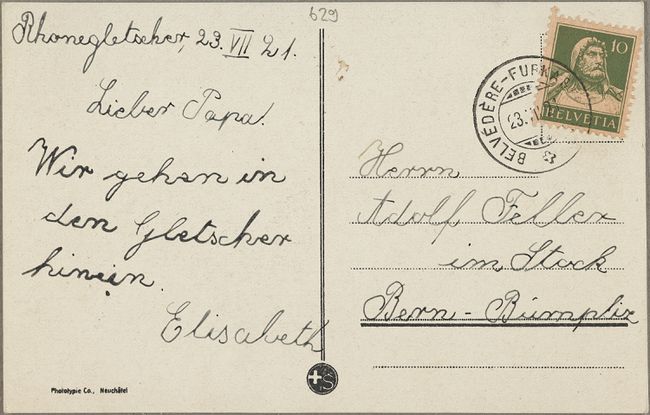 629
Rhonegletscher, 23. VII 21.
Lieber Papa.
Wir gehen in
den Gletscher
hinein.
Elisabeth
Phototypie Co., Neuchâtel
10
HELVETIA
BELVÉDÈRE-FURKA
23. VII
Herrn
Adolf Feller
im Stock
Bern-Bümpliz
+S